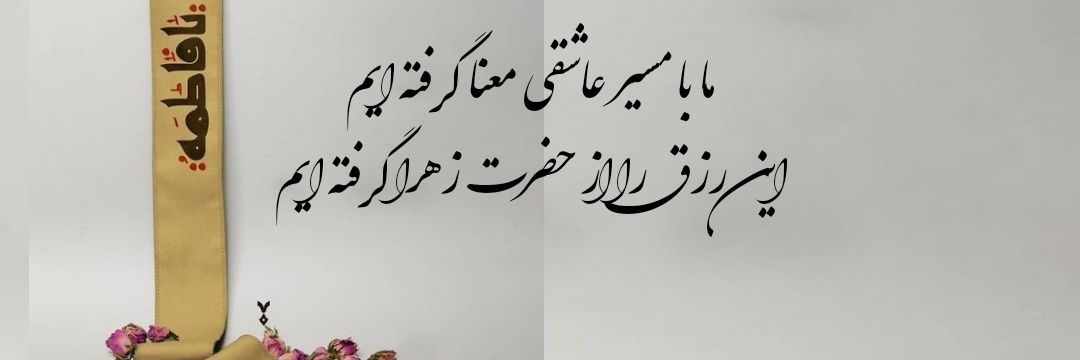 ما با مسیر عاشقی معنا گرفته ایم
این رزق را از حضرت زهرا گرفته ایم
یا فاطمه